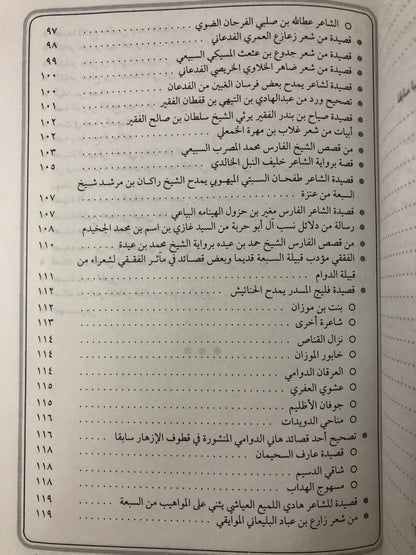 ○ الشاعر عطالله بن صلبي الفرحان الضوي ........ ٩٧
● قصيدة من شعر زعازع العمري الفدعاني ........ ٩٨
● قصيدة من شعر جدوع بن عثعث المسيكي السبيعي ........ ٩٩
● قصيدة من شعر ضاهر الخلاوي الخريصي الفدعاني ........ ١٠٠
● قصيدة لشاعر يمدح بعض فرسان الغبين من الفدعان ........ ١٠٠
● تصحيح ورد من عبدالهادي بن التيهي بن قفطان الفقير ........ ١٠١
● قصيدة صياح بن بندر الفقير يرثي الشيخ سلطان بن صالح الفقير ........ ١٠٢
● أبيات من شعر غلاب بن مهرة الخمعلي ........ ١٠٢
● من قصص الشيخ الفارس محمد المصرب السبيعي ........ ١٠٣
● قصة برواية الشاعر خليف النبل الخالدي ........ ١٠٥
● قصيدة الشاعر طفحان السبتي الميهوبي يمدح الشيخ راكان بن مرشد شيخ
السبعة من عنزة ........ ١٠٧
● قصيدة الشاعر الفارس مغير بن حزول الهينامه البياعي ........ ١٠٧
● رسالة من دلائل نسب آل أبو حربة من السيد غازي بن اسم بن محمد الجخيدم ........ ١٠٨
● من قصص الفارس الشيخ حمد بن عبيده برواية الشيخ محمد بن عبيدة ........ ١١٠
● الفققي مؤدب قبيلة السبعة قديما وبعض قصائد في مآثر الفققي لشعراء من
قبيلة الدوام ........ ١١١
● قصيدة فليج المسدر يمدح الخناتيش ........ ١١٢
○ بنت بن موزان ........ ١١٣
○ شاعرة أخرى ........ ١١٣
○ نزال القناص ........ ١١٤
○ خابور الموزان ........ ١١٤
○ العرقان الدوامي ........ ١١٤
○ عشوي العفري ........ ١١٥
○ جوفان الأظليم ........ ١١٥
○ مناحي الدويدات ........ ١١٦
● تصحيح أحد قصائد هاني الدوامي المنشورة في قطوف الإزهار سابقا ........ ١١٦
○ قصيدة عارف السحيمان ........ ١١٨
○ شاقي الدسيم ........ ١١٨
○ مسهوج الهداب ........ ١١٨
● قصيدة للشاعر هادي اللميع العياشي يثني على المواهيب من السبعة ........ ١١٩
● من شعر زارع بن عباد البليعاني الموايقي ........ ١١٩